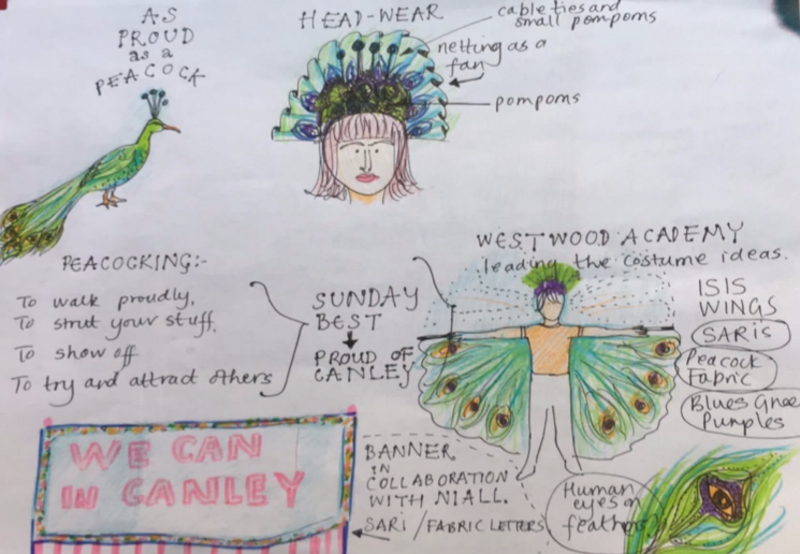 AS
PROUD
as a
PEACOCK
HEAD-WEAR
cable ties and
small pompoms
netting as a
fan
pompoms
PEACOCKING:-
To walk proudly.
To strut your stuff.
To show off
To try and attract others
SUNDAY
BEST
PROUD OF
CANLEY
WESTWOOD ACADEMY
leading the costume ideas.
ISIS
WINGS
SARIS
Peacock
Fabric
Blues Gree
Purples
WE CAN
IN CANLEY
BANNER
IN
COLLABORATION
WITH NIALL.
SARI / FABRIC LETTERS
Human
eyes on
feathers